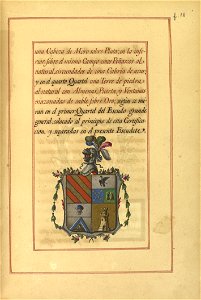 f. 18
una Cabeza de Moro sobre Plata; en lo inferior
sobre el mismo Campo, una Peñascos al
natural, circundadas de una Caberia de azur,
y en el quarto Quartel una Torre de piedra
al natural con Almenas, Puerta, y Ventanas
mazonadas de sable, sobre Oro; segun se miran
en el primer Quartel del Escudo grande
general colocado al principio de esta Certificacion,
y figuradas en el presente Escudete.